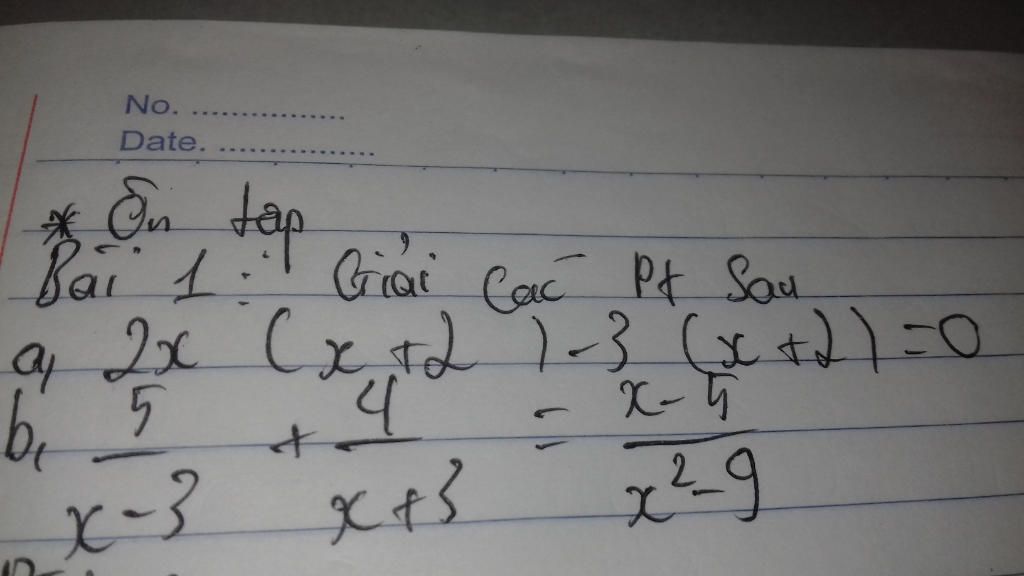 No. ................
Date. ................
* Ôn tập
Bài 1 : Giải các Pt Sau
a, 2x ( x + 2 ) - 3 ( x + 2 ) = 0
b, 5/(x - 3) + 4/(x + 3) = (x - 5)/(x² - 9)